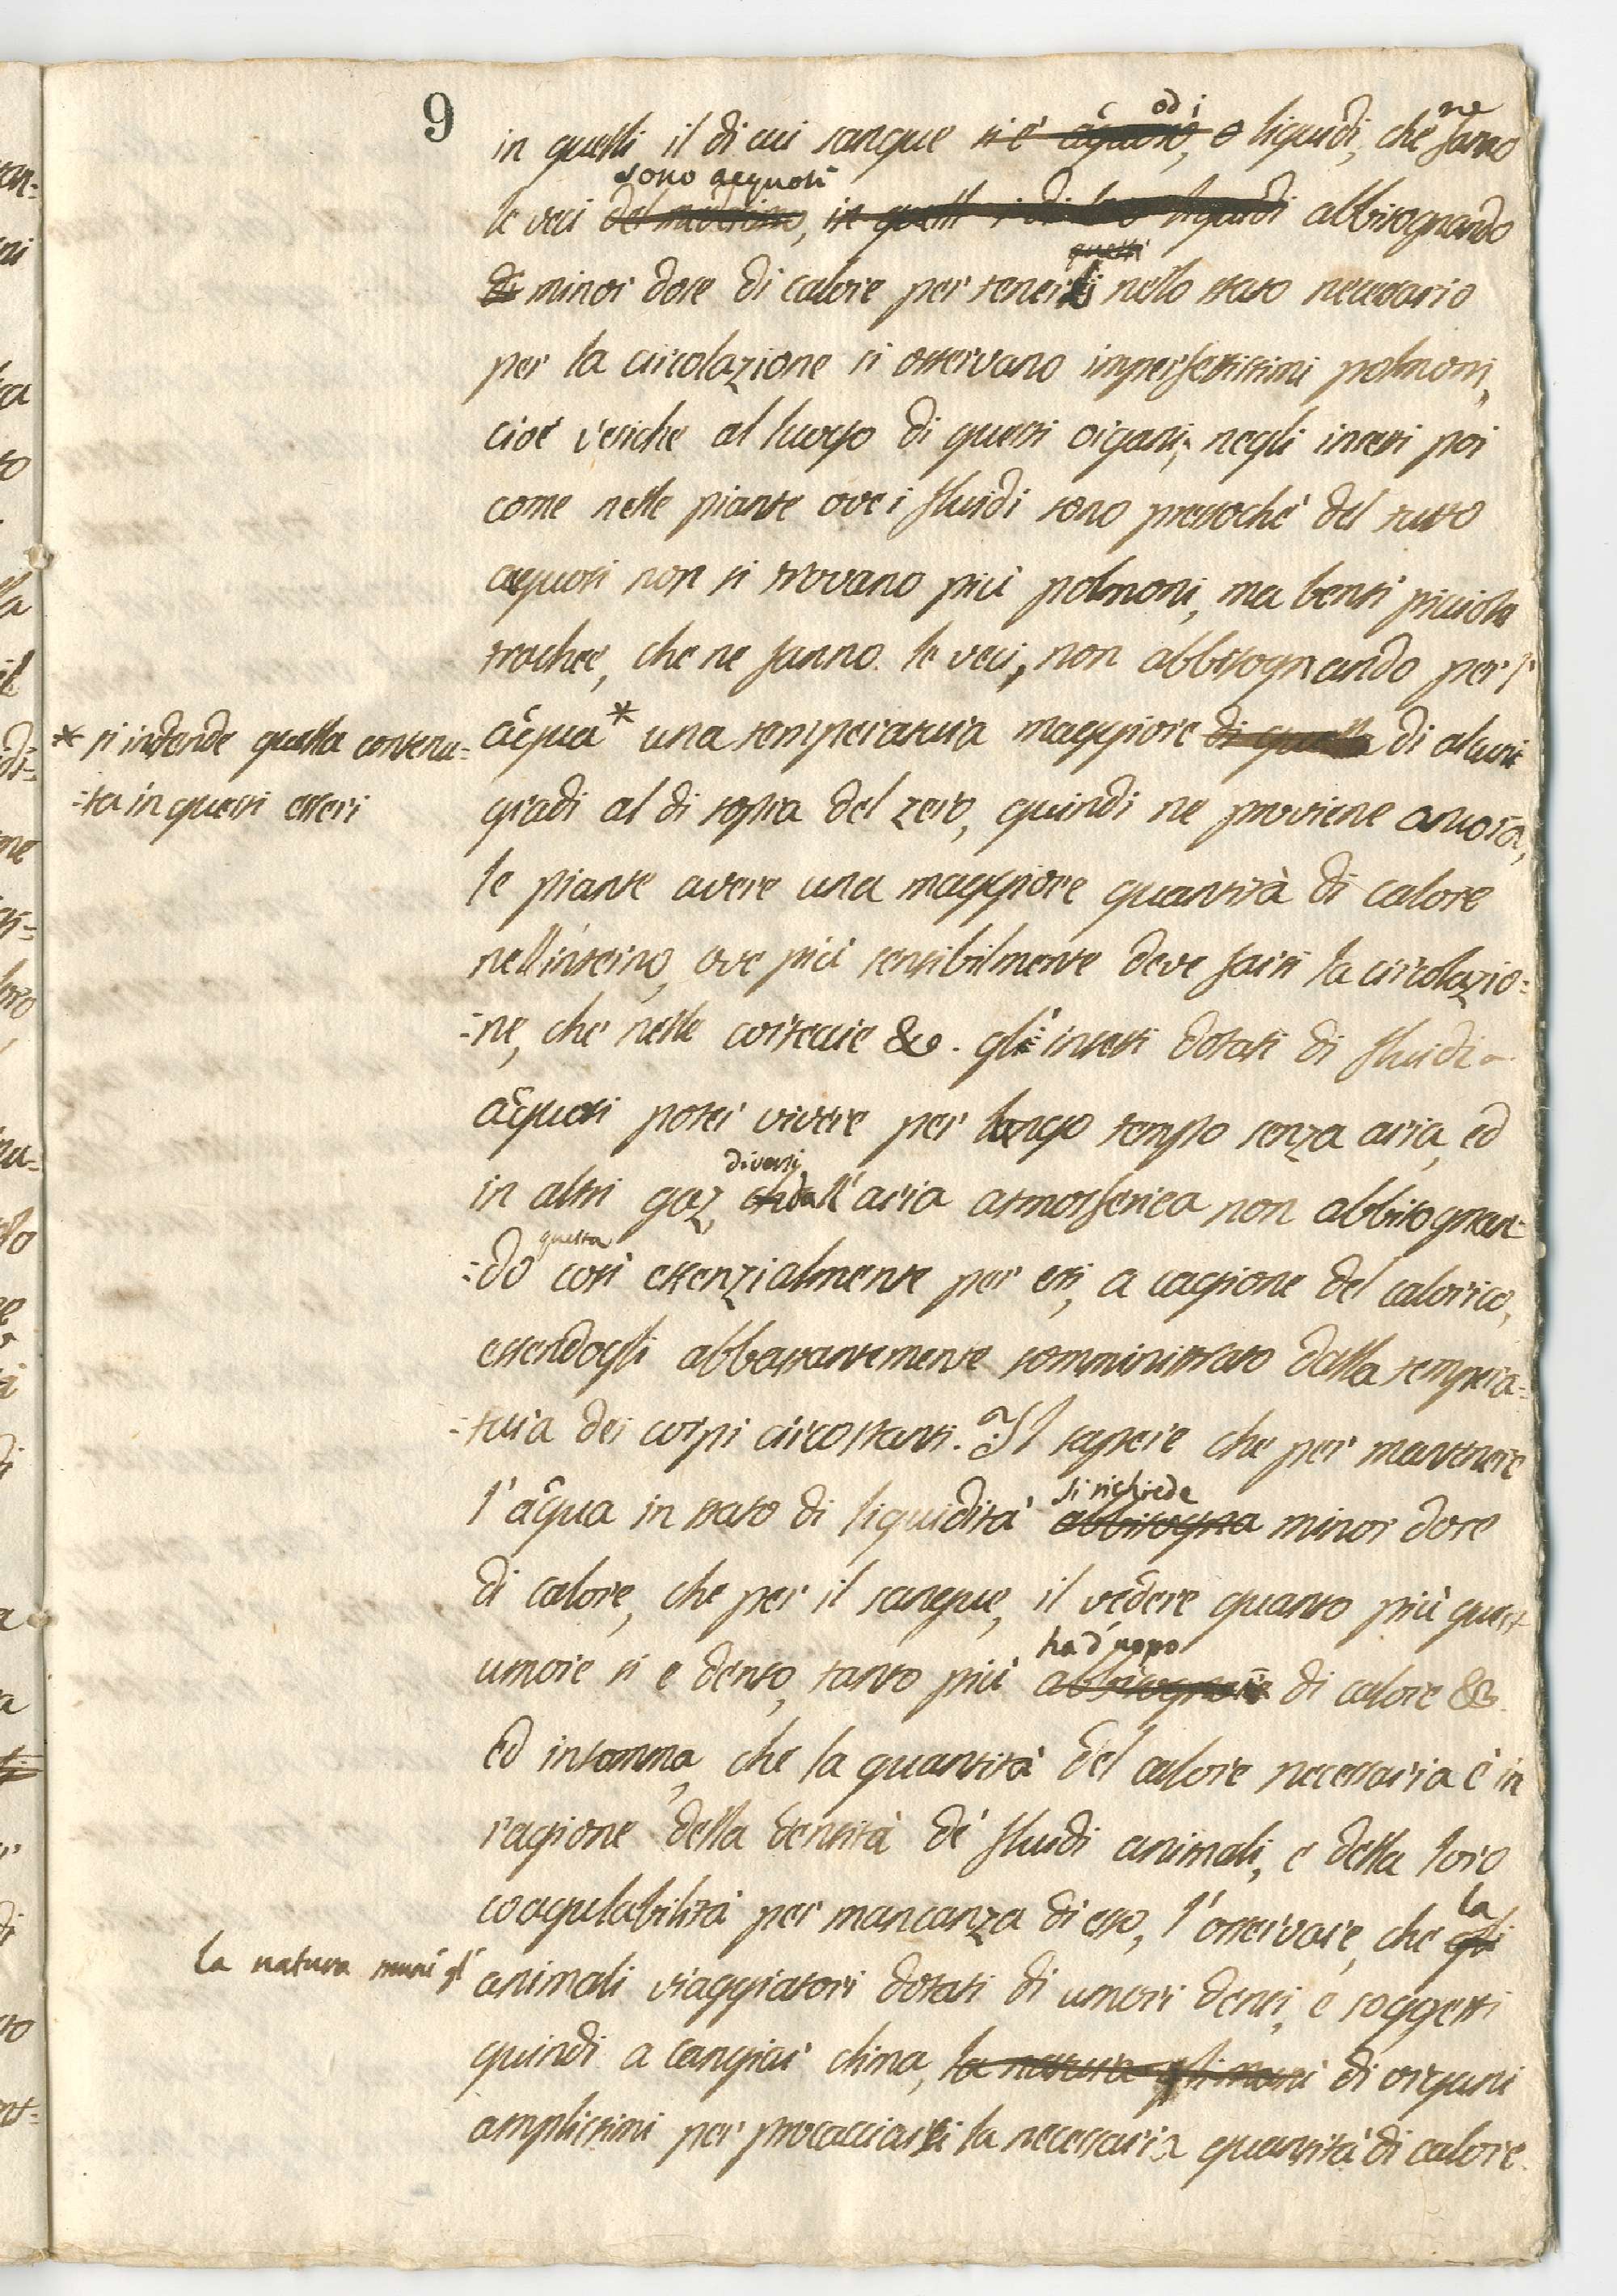 9
in quelli il di cui sangue si è acquoso, od i o liquidi, che ne fanno
le veci del medesimo, sono acquosi in quelli i di loro liquidi abbisognando
di minor dose di calore per tenerli questi nello stato necessario
per la circolazione si osservano imperfettissimi polmoni,
cioè vesiche al luogo di questi organi; negli insetti poi
come nelle piante ove i fluidi sono pressochè del tutto
acquosi non si trovano più polmoni, ma bensì picciole
trachee, che ne fanno le veci, non abbisognando per l'
acqua * una temperatura maggiore di quella di alcuni
* si intende quella contenu=
=ta in questi esseri
gradi al di sopra del zero, quindi ne proviene ancora,
le piante avere una maggiore quantità di calore
nell'interno, ove più sensibilmente deve farsi la circolazio=
=ne, che nelle corteccie &c. gli insetti dotati di fluidi
acquosi poter vivere per lungo tempo senza aria, ed
in altri gaz, diversi dall'aria atmosferica non abbisognan=
=do questa così essenzialmente per essi, a cagione del calorico,
essendogli abbastantemente somministrato dalla tempera=
=tura dei corpi circostanti. Il sapere che per mantenere
l'acqua in stato di liquidità abbisogna si richiede minor dose
di calore, che per il sangue, il vedere quanto più quest'
umore si è denso, tanto più ha d'uopo di calore &c.
ed insomma, che la quantità del calore necessaria è in
ragione della densità de' fluidi animali, e della loro
coagulabilità per mancanza di esso, l'osservare, che gli la
la natura munì gl'
animali viaggiatori dotati di umori densi, e soggetti
quindi a cangiar clima, la natura gli munì di organi
amplissimi per procacciarsi la necessaria quantità di calore.